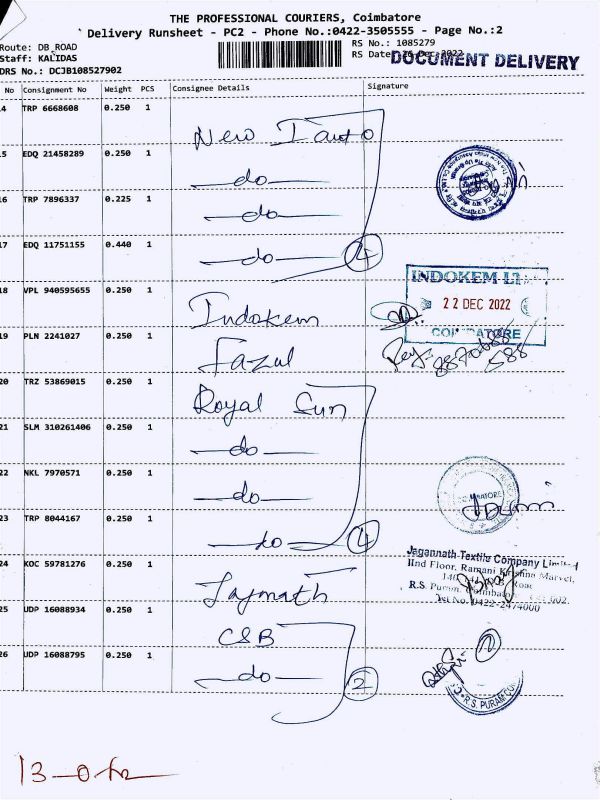 THE PROFESSIONAL COURIERS, Coimbatore
Delivery Runsheet - PC2 - Phone No.:0422-3505555 - Page No.:2
Route: DB_ROAD
Staff: KALIDAS
DRS No.: DCJB108527902
RS No.: 1085279
RS Date: Dec 2022
DOCUMENT DELIVERY
No Consignment No Weight PCS Consignee Details Signature
4 TRP 6668608 0.250 1 New I auto
5 EDQ 21458289 0.250 1 -do-
6 TRP 7896337 0.225 1 -do-
7 EDQ 11751155 0.440 1 -do- 4
8 VPL 940595655 0.250 1 Indokem
INDOKEM LT
22 DEC 2022
COIMBATORE
9 PLN 2241027 0.250 1 Fazul
20 TRZ 53869015 0.250 1 Royal Sun
21 SLM 310261406 0.250 1 -do-
22 NKL 7970571 0.250 1 -do-
23 TRP 8044167 0.250 1 -do- 4
Jagannath Textile Company Limited
IInd Floor, Ramani Krishna Marvel,
R.S. Puram, Coimbatore
Tel No. 0422-2474000
24 KOC 59781276 0.250 1
25 UDP 16088934 0.250 1 CSB
26 UDP 16088795 0.250 1 -do- 2
R.S. PURAM